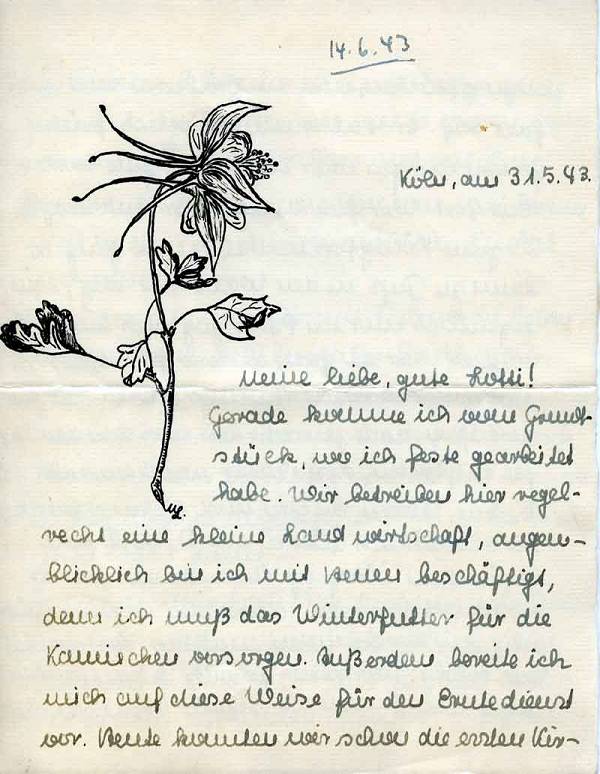 14.6.43
Köln, am 31.5.43.
Meine liebe, gute Lotti!
Gerade komme ich vom Grund-
stück, wo ich feste gearbeitet
habe. Wir betreiben hier regel-
recht eine kleine Landwirtschaft, augen-
blicklich bin ich mit Heuen beschäftigt,
denn ich muß das Winterfutter für die
Kaninchen vorsorgen. Außerdem bereite ich
mich auf diese Weise für den Erntedienst
vor. Heute konnten wir schon die ersten Kir-